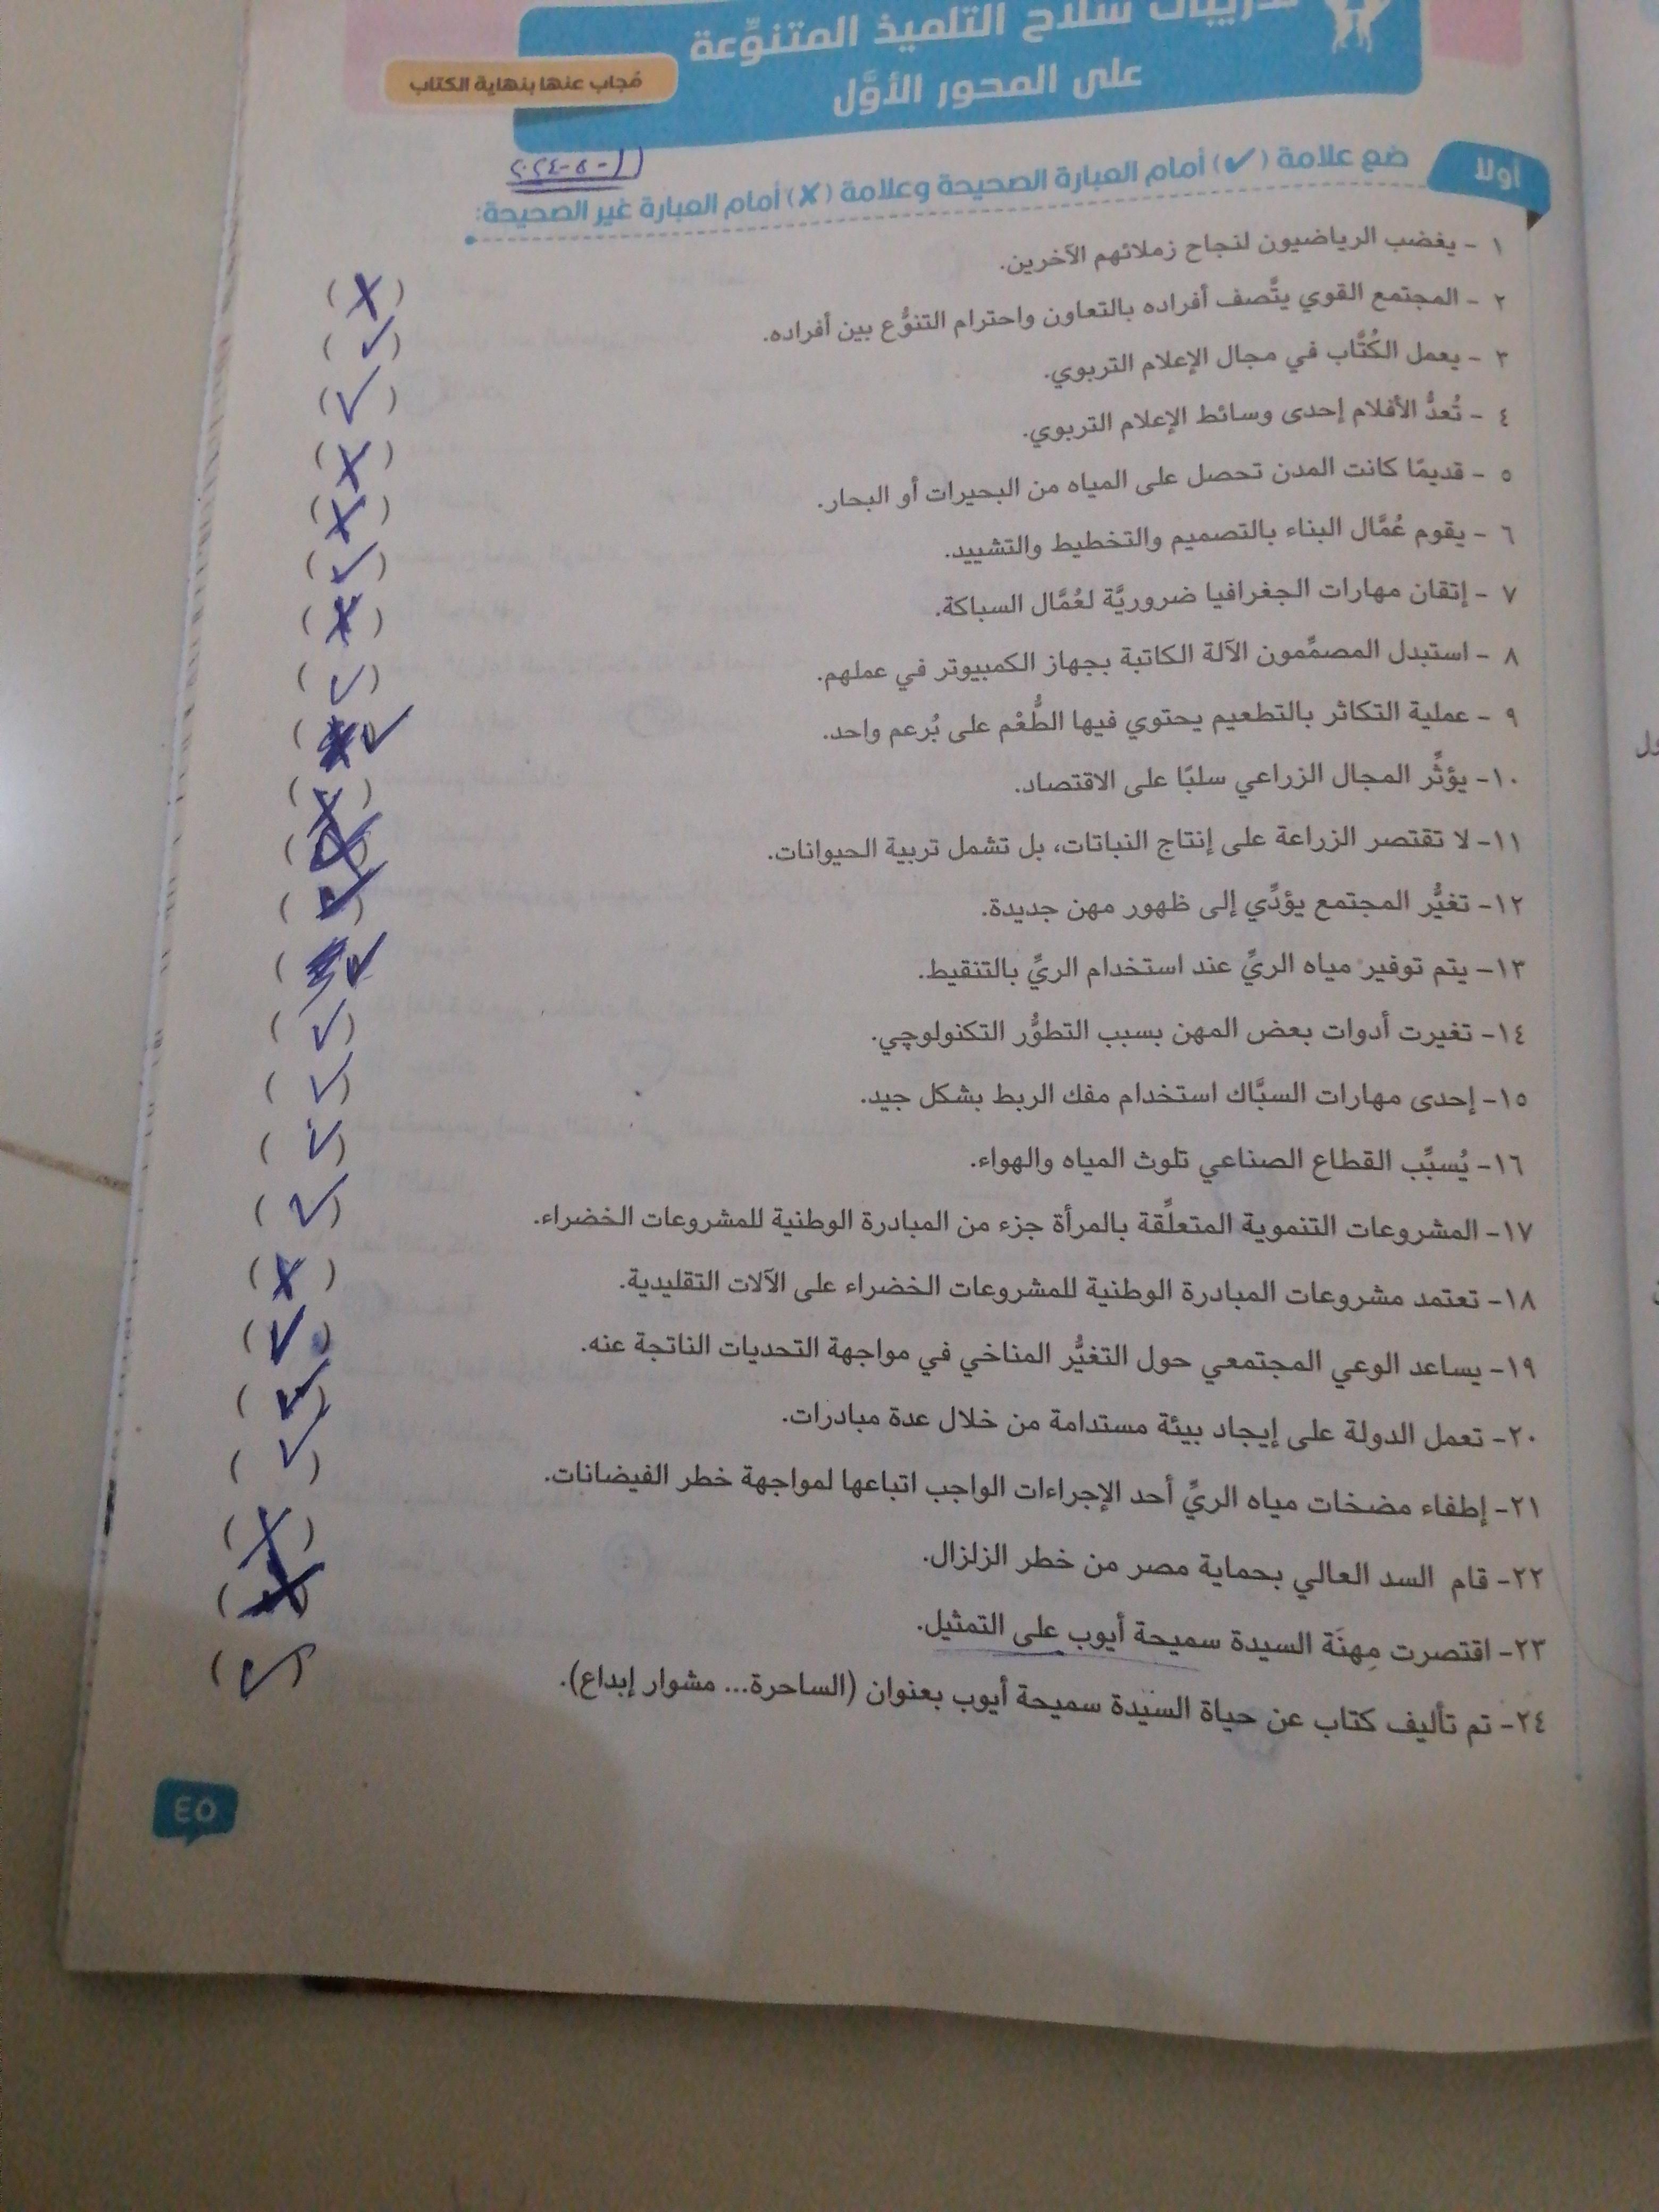 تدريبات سلاح التلميذ المتنوِّعة
على المحور الأوَّل
مُجاب عنها بنهاية الكتاب
أولا
ضع علامة (✔) أمام العبارة الصحيحة وعلامة (✘) أمام العبارة غير الصحيحة:
١ - يغضب الرياضيون لنجاح زملائهم الآخرين. (✗)
٢ - المجتمع القوي يتَّصف أفراده بالتعاون واحترام التنوُّع بين أفراده. (✓)
٣ - يعمل الكُتَّاب في مجال الإعلام التربوي. (✓)
٤ - تُعدُّ الأفلام إحدى وسائط الإعلام التربوي. (✗)
٥ - قديمًا كانت المدن تحصل على المياه من البحيرات أو البحار. (✗)
٦ - يقوم عُمَّال البناء بالتصميم والتخطيط والتشييد. (✓)
٧ - إتقان مهارات الجغرافيا ضروريَّة لعُمَّال السباكة. (✗)
٨ - استبدل المصمِّمون الآلة الكاتبة بجهاز الكمبيوتر في عملهم. (✓)
٩ - عملية التكاثر بالتطعيم يحتوي فيها الطُّعْم على بُرعم واحد. (✓)
١٠- يؤثِّر المجال الزراعي سلبًا على الاقتصاد. (✗)
١١- لا تقتصر الزراعة على إنتاج النباتات، بل تشمل تربية الحيوانات.
١٢- تغيُّر المجتمع يؤدِّي إلى ظهور مهن جديدة. (✓)
١٣- يتم توفير مياه الريِّ عند استخدام الريِّ بالتنقيط. (✓)
١٤- تغيرت أدوات بعض المهن بسبب التطوُّر التكنولوچي. (✓)
١٥- إحدى مهارات السبَّاك استخدام مفك الربط بشكل جيد. (✓)
١٦- يُسبِّب القطاع الصناعي تلوث المياه والهواء. (✓)
١٧- المشروعات التنموية المتعلِّقة بالمرأة جزء من المبادرة الوطنية للمشروعات الخضراء. (✓)
١٨- تعتمد مشروعات المبادرة الوطنية للمشروعات الخضراء على الآلات التقليدية. (✗)
١٩- يساعد الوعي المجتمعي حول التغيُّر المناخي في مواجهة التحديات الناتجة عنه. (✓)
٢٠- تعمل الدولة على إيجاد بيئة مستدامة من خلال عدة مبادرات. (✓)
٢١- إطفاء مضخات مياه الريِّ أحد الإجراءات الواجب اتباعها لمواجهة خطر الفيضانات. (✓)
٢٢- قام السد العالي بحماية مصر من خطر الزلزال. (✗)
٢٣- اقتصرت مِهنَة السيدة سميحة أيوب على التمثيل. (✗)
٢٤- تم تأليف كتاب عن حياة السيدة سميحة أيوب بعنوان (الساحرة... مشوار إبداع). (✓)
٤٥